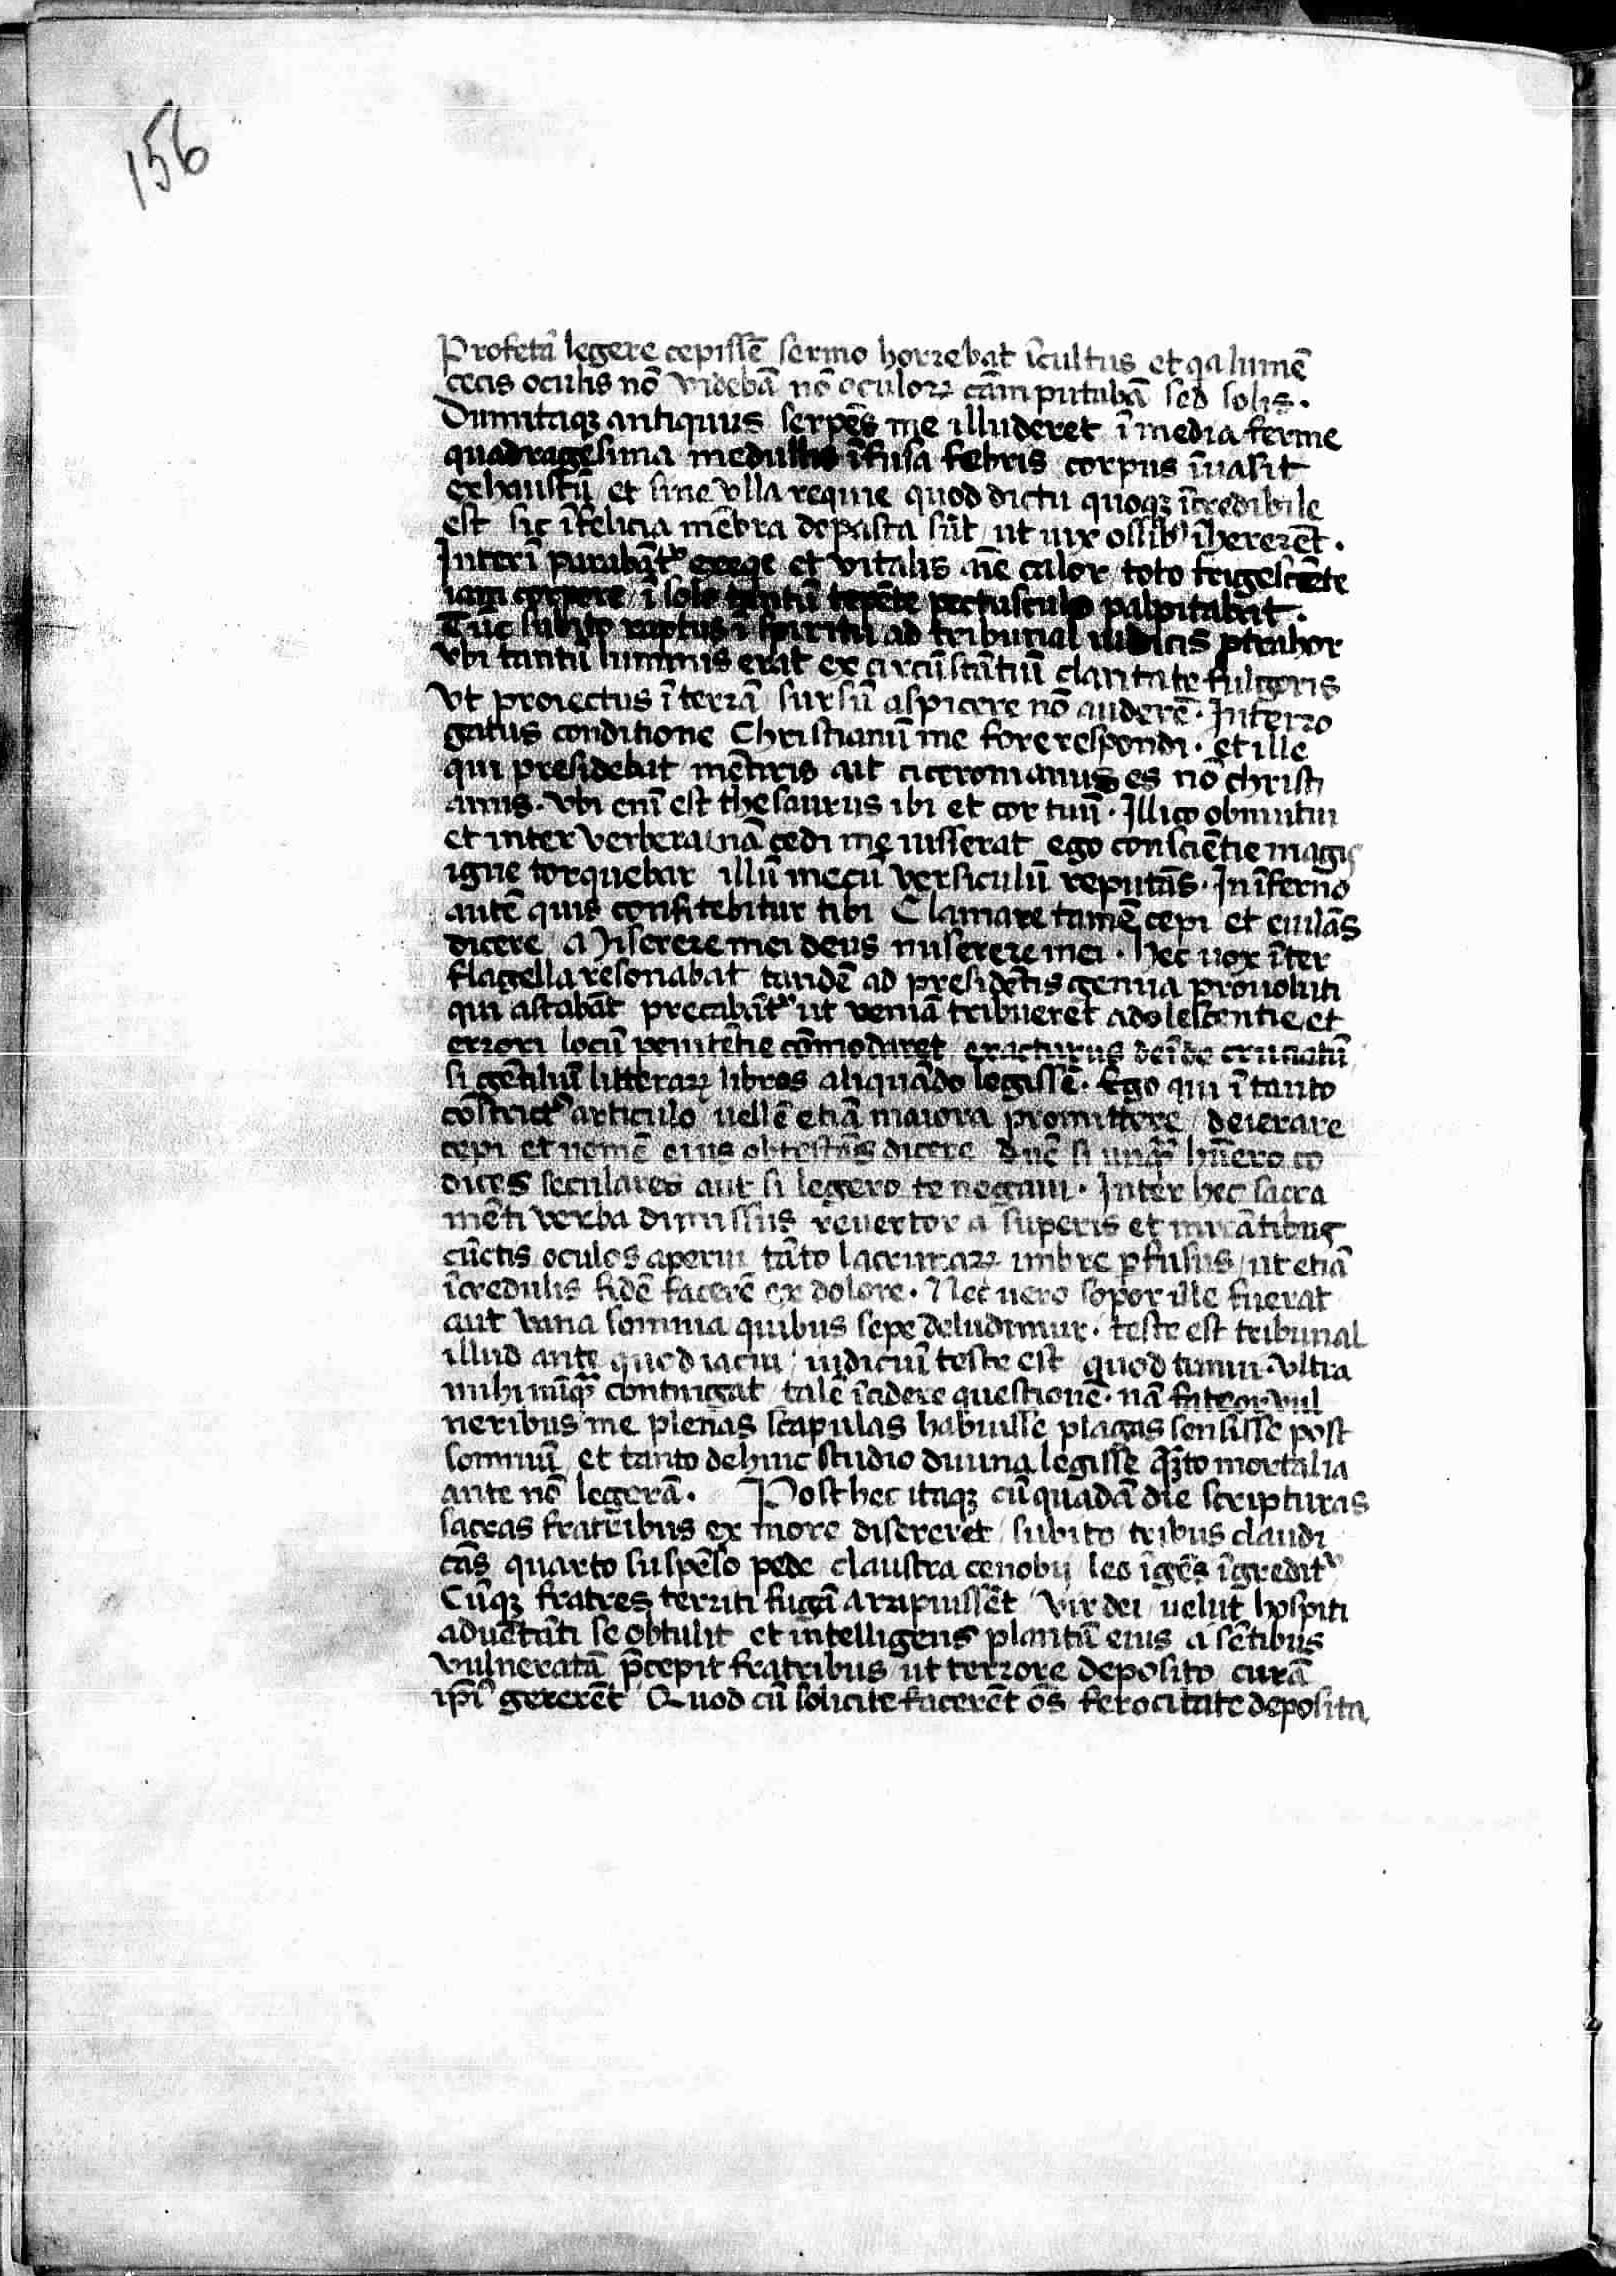 156
Profetā legere cepissē sermo horrebat īcultus et qa lumē
cecis oculis nō videbā nō oculoꝝ cām putabā sed solis.
Dumitaqꝫ antiquus serpēs me illuderet ī media ferme
quadragesima medullis īfusa febris corpus īvasit
exhaustū et sine vlla requie quod dictu quoqꝫ īcredibile
est sic īfelicia mēbra depasta sūt / ut uix ossibꝰ īhererēt.
Interī parabātᷣ exeqe et vitalis aīe calor toto frigescēte
iam corpore / ī solo tantū tepēte pectusculo palpitabat.
Tūc subito raptus ī spiritu ad tribunal iudicis ptrahor
vbi tantū luminis erat ex circūstātiū claritate fulgoris
vt proiectus ī terrā sursū aspicere nō auderē. Interro
gatus conditione Christianū me fore respondi. et ille
qui presidebat mētiris ait ciceronianus es nō christi
anus. vbi enī est thesaurus ibi et cor tuū. Illico obmutui
et inter verbera / nā cedi me iusserat ego consciētie magis
igne torquebar illū mecū versiculū reputās. In īferno
autē quis confitebitur tibi Clamare tamē cepi et eiulās
dicere Miserere mei deus miserere mei. hec uox īter
flagella resonabat tandē ad presidētis genua prouoluti
qui astabāt precabātᷣ ut veniā tribueret adolescentie et
errori locū penitētie cōmodaret exacturus deīde cruciatū
si gētiliū litteraꝝ libros aliquādo legissē. Ego qui ī tanto
cōstrictꝰ articulo uellē etiā maiora promittere / deierare
cepi et nomē eius obtestās dicere dn̄e si unqꝫ̄ hūero co
dices seculares aut si legero te negaui. Inter hec sacra
mēti verba dimissus reuertor a superis et mirātibus
cūctis oculos aperui tāto lacrimaꝝ imbre pfusus / ut etiā
īcredulis fidē facerē ex dolore. Nec uero sopor ille fuerat
aut vana somnia quibus sepe deludimur. teste est tribunal
illud ante quod iacui / iudiciū teste est quod timui. vltra
mihi nūqꝫ̄ contingat talē īcidere questionē. nā fateor vul
neribus me plenas scapulas habuisse plagas sensisse post
somnum et tanto dehinc studio diuina legisse qꝫ̄to mortalia
ante nō legerā. Post hec itaqꝫ cū quadā die scripturas
sacras fratribus ex more disereret / subito tribus claudi
cās quarto suspēso pede claustra cenobij leo īgēs īgreditᷣ
Cūqꝫ fratres territi fugā arripuissēt / vir dei / uelut hospiti
aduētāti se obtulit et intelligens plantā eius a sētibus
vulneratā p̄cepit fratribus / ut terrore deposito curā
ip̄i gererēt Quod cū solicite facerēt ōs ferocitate deposita